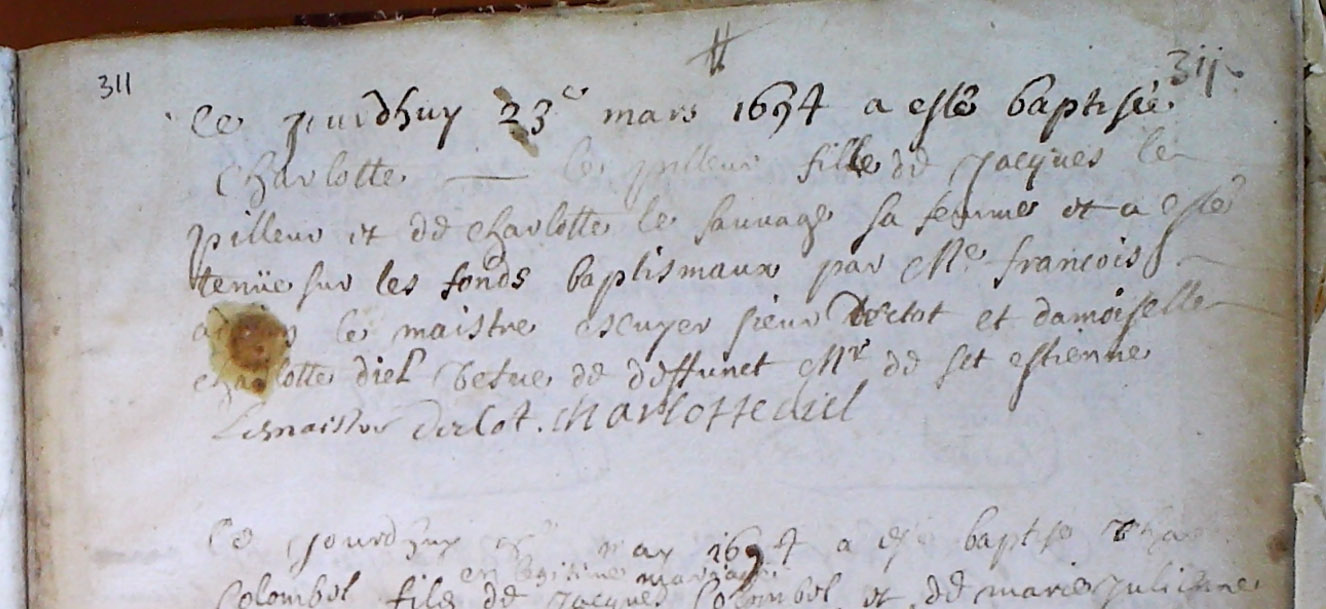 311
31j.
Ce jourdhuy 23e mars 1694 a esté baptisée
Charlotte — le pilleur fille de Jacques le
pilleur et de Charlotte le sauvage sa femme et a esté
tenüe sur les fonds baptismaux par Me francois
le maistre escuyer sieur et damoiselle
charlotte diel vefue de deffunct Mr de st estienne
Lemaistre charlotte diel
Ce Jourdhuy may 1694 a baptisé
en legitime mariage
Colombel fils de Jacques Colombel et de marie Julienne